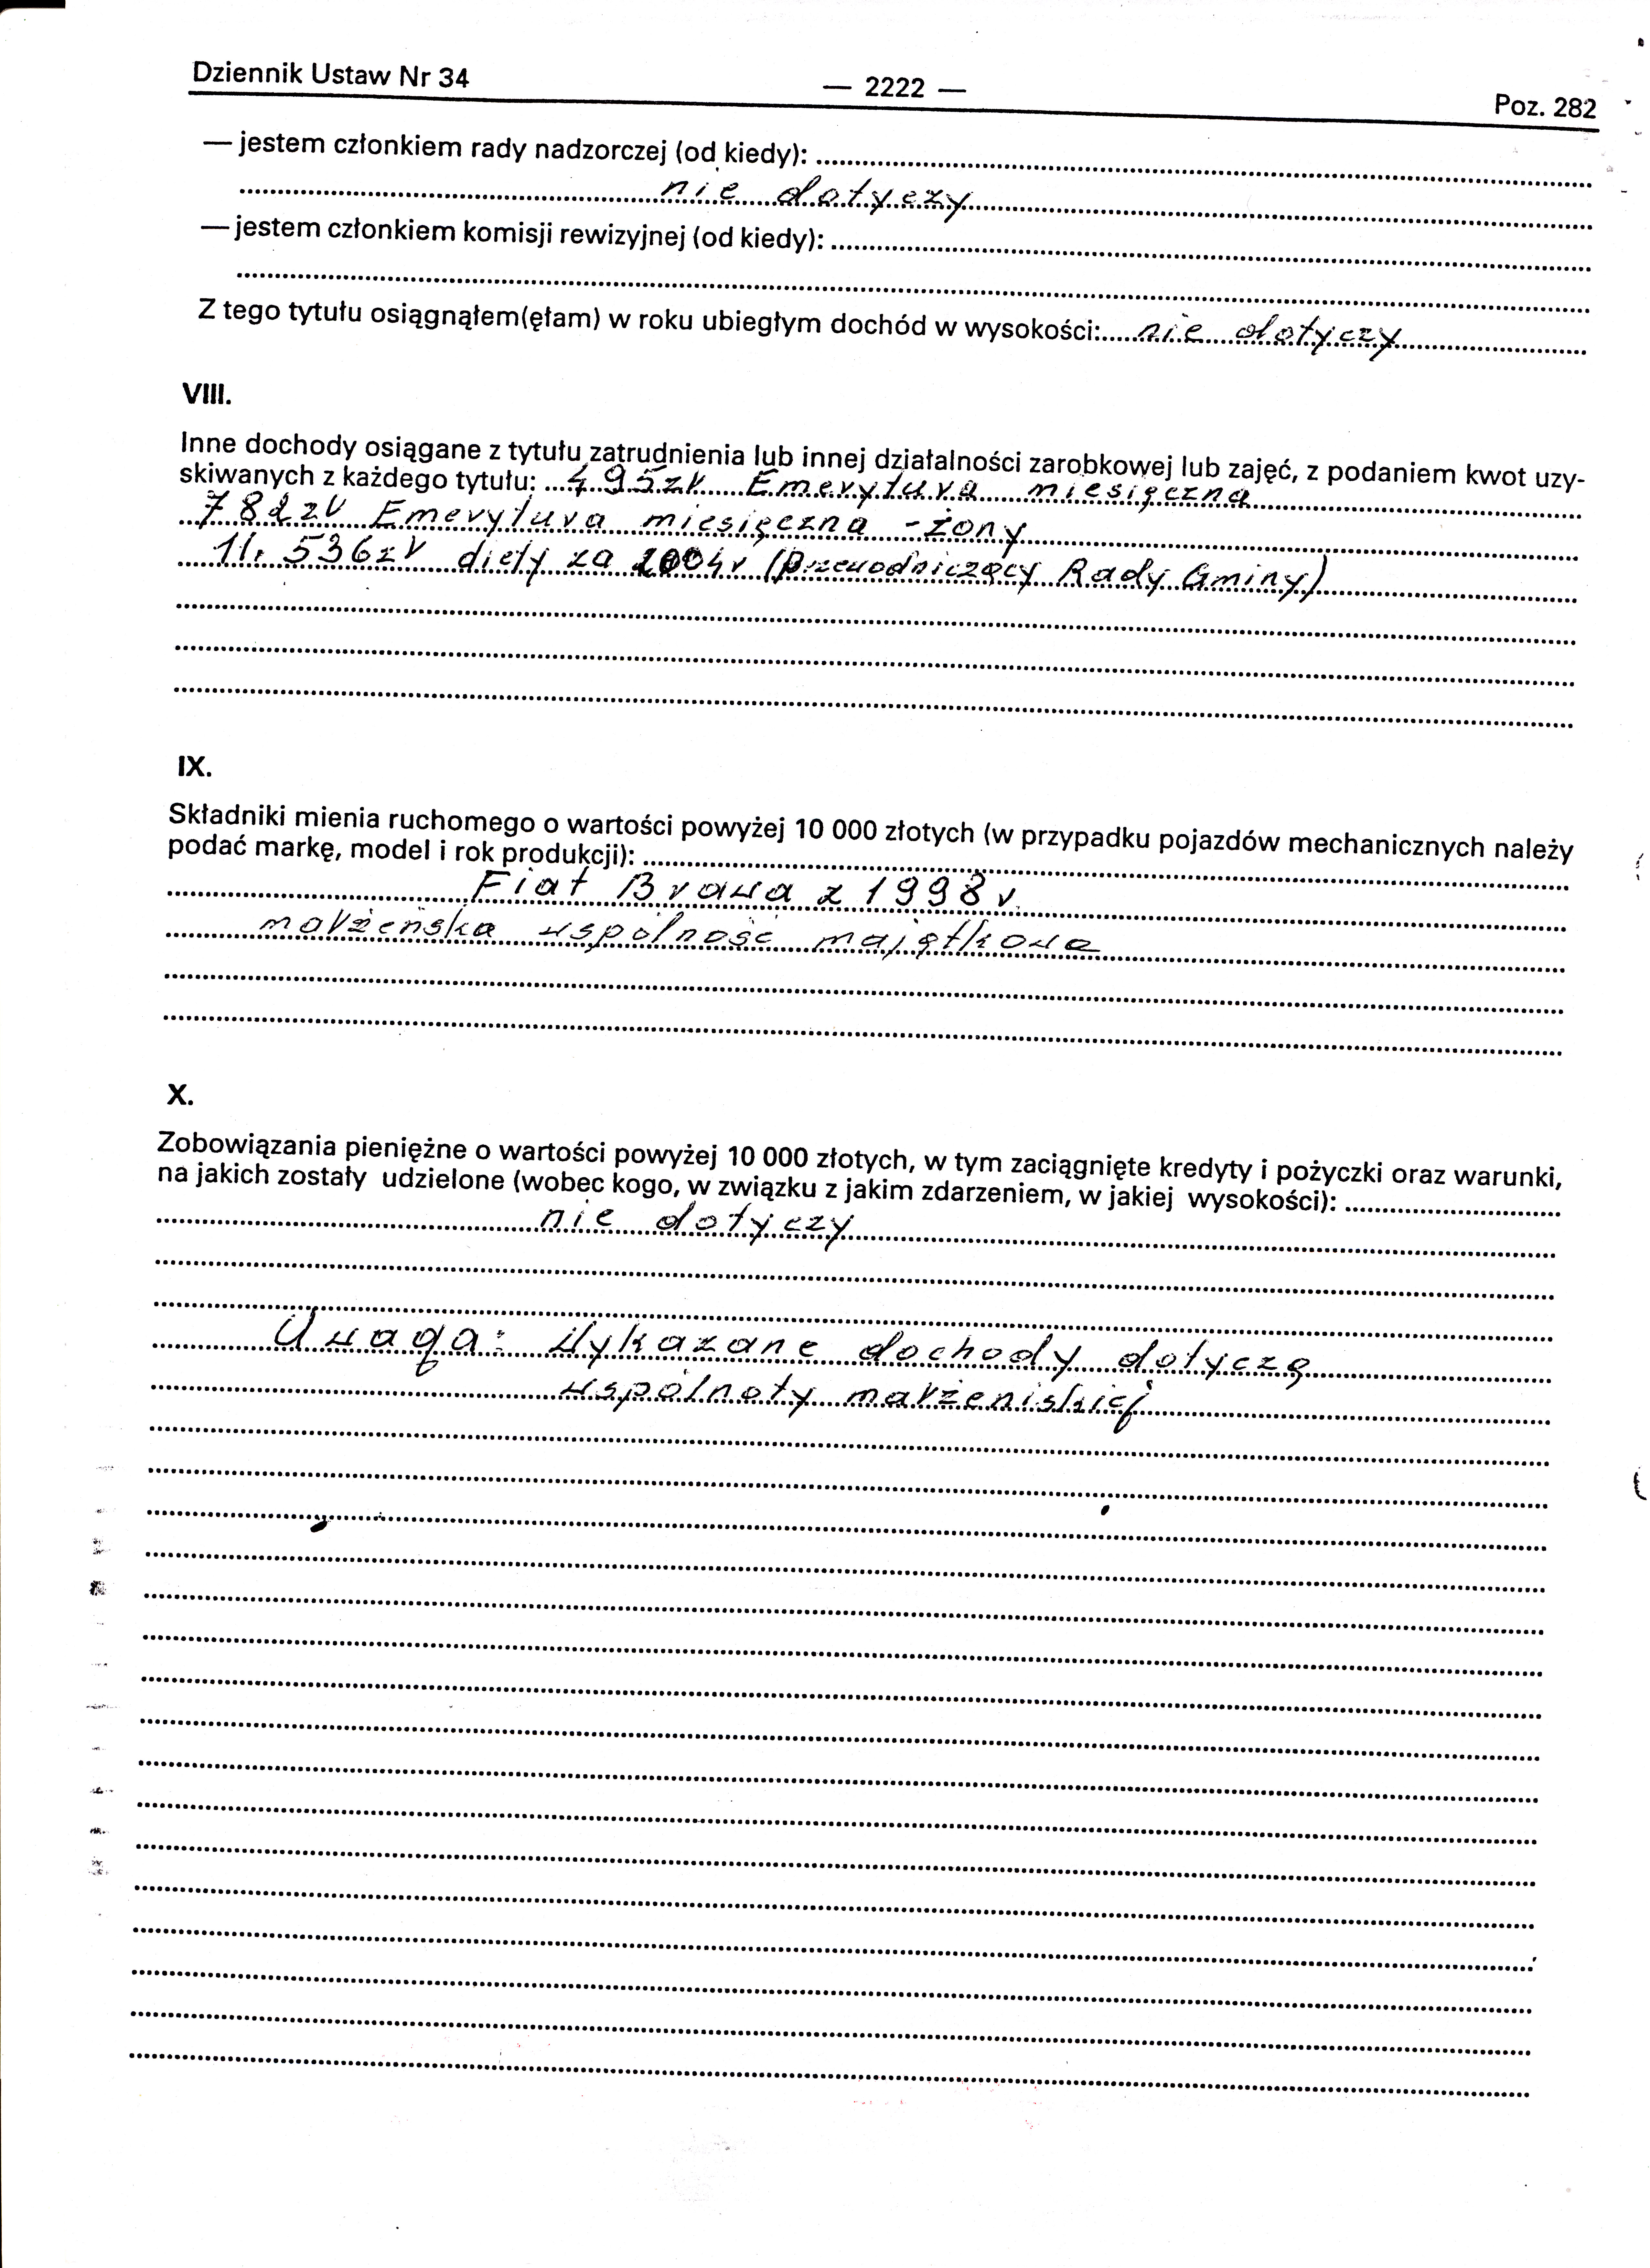 Dziennik Ustaw Nr 34 — 2222 — Poz. 282
— jestem członkiem rady nadzorczej (od kiedy):
nie dotyczy
— jestem członkiem komisji rewizyjnej (od kiedy):
Z tego tytułu osiągnąłem(ęłam) w roku ubiegłym dochód w wysokości: nie dotyczy
VIII.
Inne dochody osiągane z tytułu zatrudnienia lub innej działalności zarobkowej lub zajęć, z podaniem kwot uzy-
skiwanych z każdego tytułu: 495 zł Emerytura miesięczna
782 zł Emerytura miesięczna - żony
11.536 zł diety za 2004r (Przewodniczący Rady Gminy)
IX.
Składniki mienia ruchomego o wartości powyżej 10 000 złotych (w przypadku pojazdów mechanicznych należy
podać markę, model i rok produkcji):
Fiat Brawa z 1998 r.
małżeńska wspólność majątkowa
X.
Zobowiązania pieniężne o wartości powyżej 10 000 złotych, w tym zaciągnięte kredyty i pożyczki oraz warunki,
na jakich zostały udzielone (wobec kogo, w związku z jakim zdarzeniem, w jakiej wysokości):
nie dotyczy
Uwaga: Wykazane dochody dotyczą
wspólnoty małżeniskiej